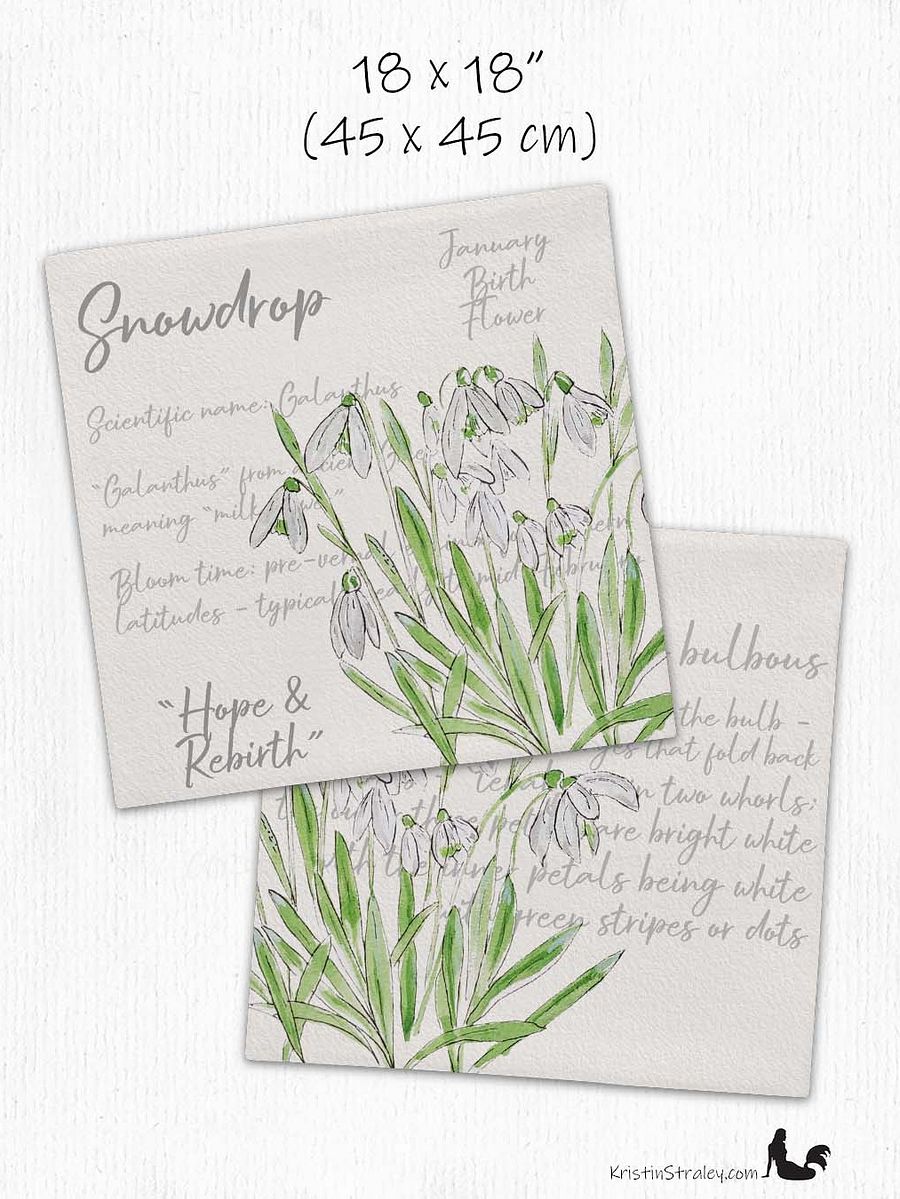 18 x 18"
(45 x 45 cm)
January
Birth
Flower
Snowdrop
Scientific name: Galanthus
"Galanthus" from ancient
meaning "milk
Bloom time: pre-vernal
latitudes - typical mid February
"Hope &
Rebirth"
bulbous
the bulb -
that fold back
in two whorls;
petals are bright white
with the inner petals being white
green stripes or dots
KristinStraley.com